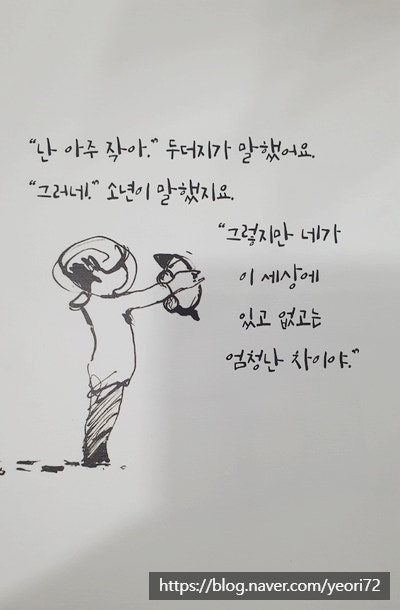 “난 아주 작아.” 두더지가 말했어요.
“그러네.” 소년이 말했지요.
“그렇지만 네가
이 세상에
있고 없고는
엄청난 차이야.”
https://blog.naver.com/yeori72